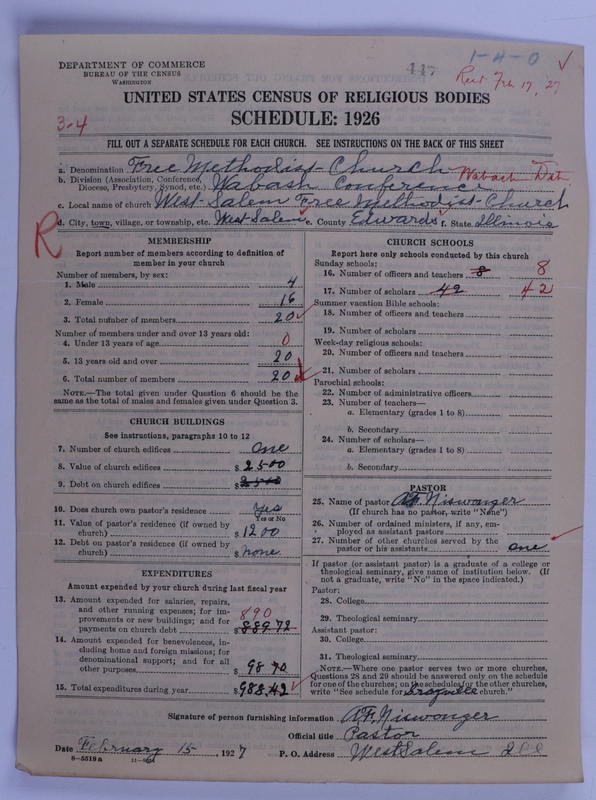 1-4-0
DEPARTMENT OF COMMERCE
BUREAU OF THE CENSUS
WASHINGTON
447
Rec Feb 17, '27
UNITED STATES CENSUS OF RELIGIOUS BODIES
3-4
SCHEDULE: 1926
FILL OUT A SEPARATE SCHEDULE FOR EACH CHURCH. SEE INSTRUCTIONS ON THE BACK OF THIS SHEET
a. Denomination Free Methodist Church
b. Division (Association, Conference, Diocese, Presbytery, Synod, etc.) Wabash Conference Wabash Dist
c. Local name of church West Salem Free Methodist Church
d. City, town, village, or township, etc. West Salem e. County Edwards f. State Illinois
R
MEMBERSHIP
Report number of members according to definition of
member in your church
Number of members, by sex:
1. Male 4
2. Female 16
3. Total number of members 20
Number of members under and over 13 years old:
4. Under 13 years of age 0
5. 13 years old and over 20
6. Total number of members 20
NOTE.—The total given under Question 6 should be the
same as the total of males and females given under Question 3.
CHURCH BUILDINGS
See instructions, paragraphs 10 to 12
7. Number of church edifices one
8. Value of church edifices $ 2500
9. Debt on church edifices $ 2500
10. Does church own pastor's residence yes
Yes or No
11. Value of pastor's residence (if owned by
church) $ 1200
12. Debt on pastor's residence (if owned by
church) $ none
EXPENDITURES
Amount expended by your church during last fiscal year
13. Amount expended for salaries, repairs,
and other running expenses; for im-
provements or new buildings; and for
payments on church debt $ 889.72 890
14. Amount expended for benevolences, in-
cluding home and foreign missions; for
denominational support; and for all
other purposes $ 98 70
15. Total expenditures during year $ 988.42
CHURCH SCHOOLS
Report here only schools conducted by this church
Sunday schools:
16. Number of officers and teachers 8 8
17. Number of scholars 42 42
Summer vacation Bible schools:
18. Number of officers and teachers
19. Number of scholars
Week-day religious schools:
20. Number of officers and teachers
21. Number of scholars
Parochial schools:
22. Number of administrative officers
23. Number of teachers—
a. Elementary (grades 1 to 8)
b. Secondary
24. Number of scholars—
a. Elementary (grades 1 to 8)
b. Secondary
PASTOR
25. Name of pastor A.F. Niswonger
(If church has no pastor, write "None")
26. Number of ordained ministers, if any, em-
ployed as assistant pastors
27. Number of other churches served by the
pastor or his assistants one
If pastor (or assistant pastor) is a graduate of a college or
theological seminary, give name of institution below. (If
not a graduate, write "No" in the space indicated.)
Pastor:
28. College
29. Theological seminary
Assistant pastor:
30. College
31. Theological seminary
NOTE.—Where one pastor serves two or more churches,
Questions 28 and 29 should be answered only on the schedule
for one of the churches; on the schedules for the other churches,
write "See schedule for church."
Signature of person furnishing information A.F. Niswonger
Official title Pastor
Date February 15, 1927 P. O. Address West Salem Ill
8-5518a